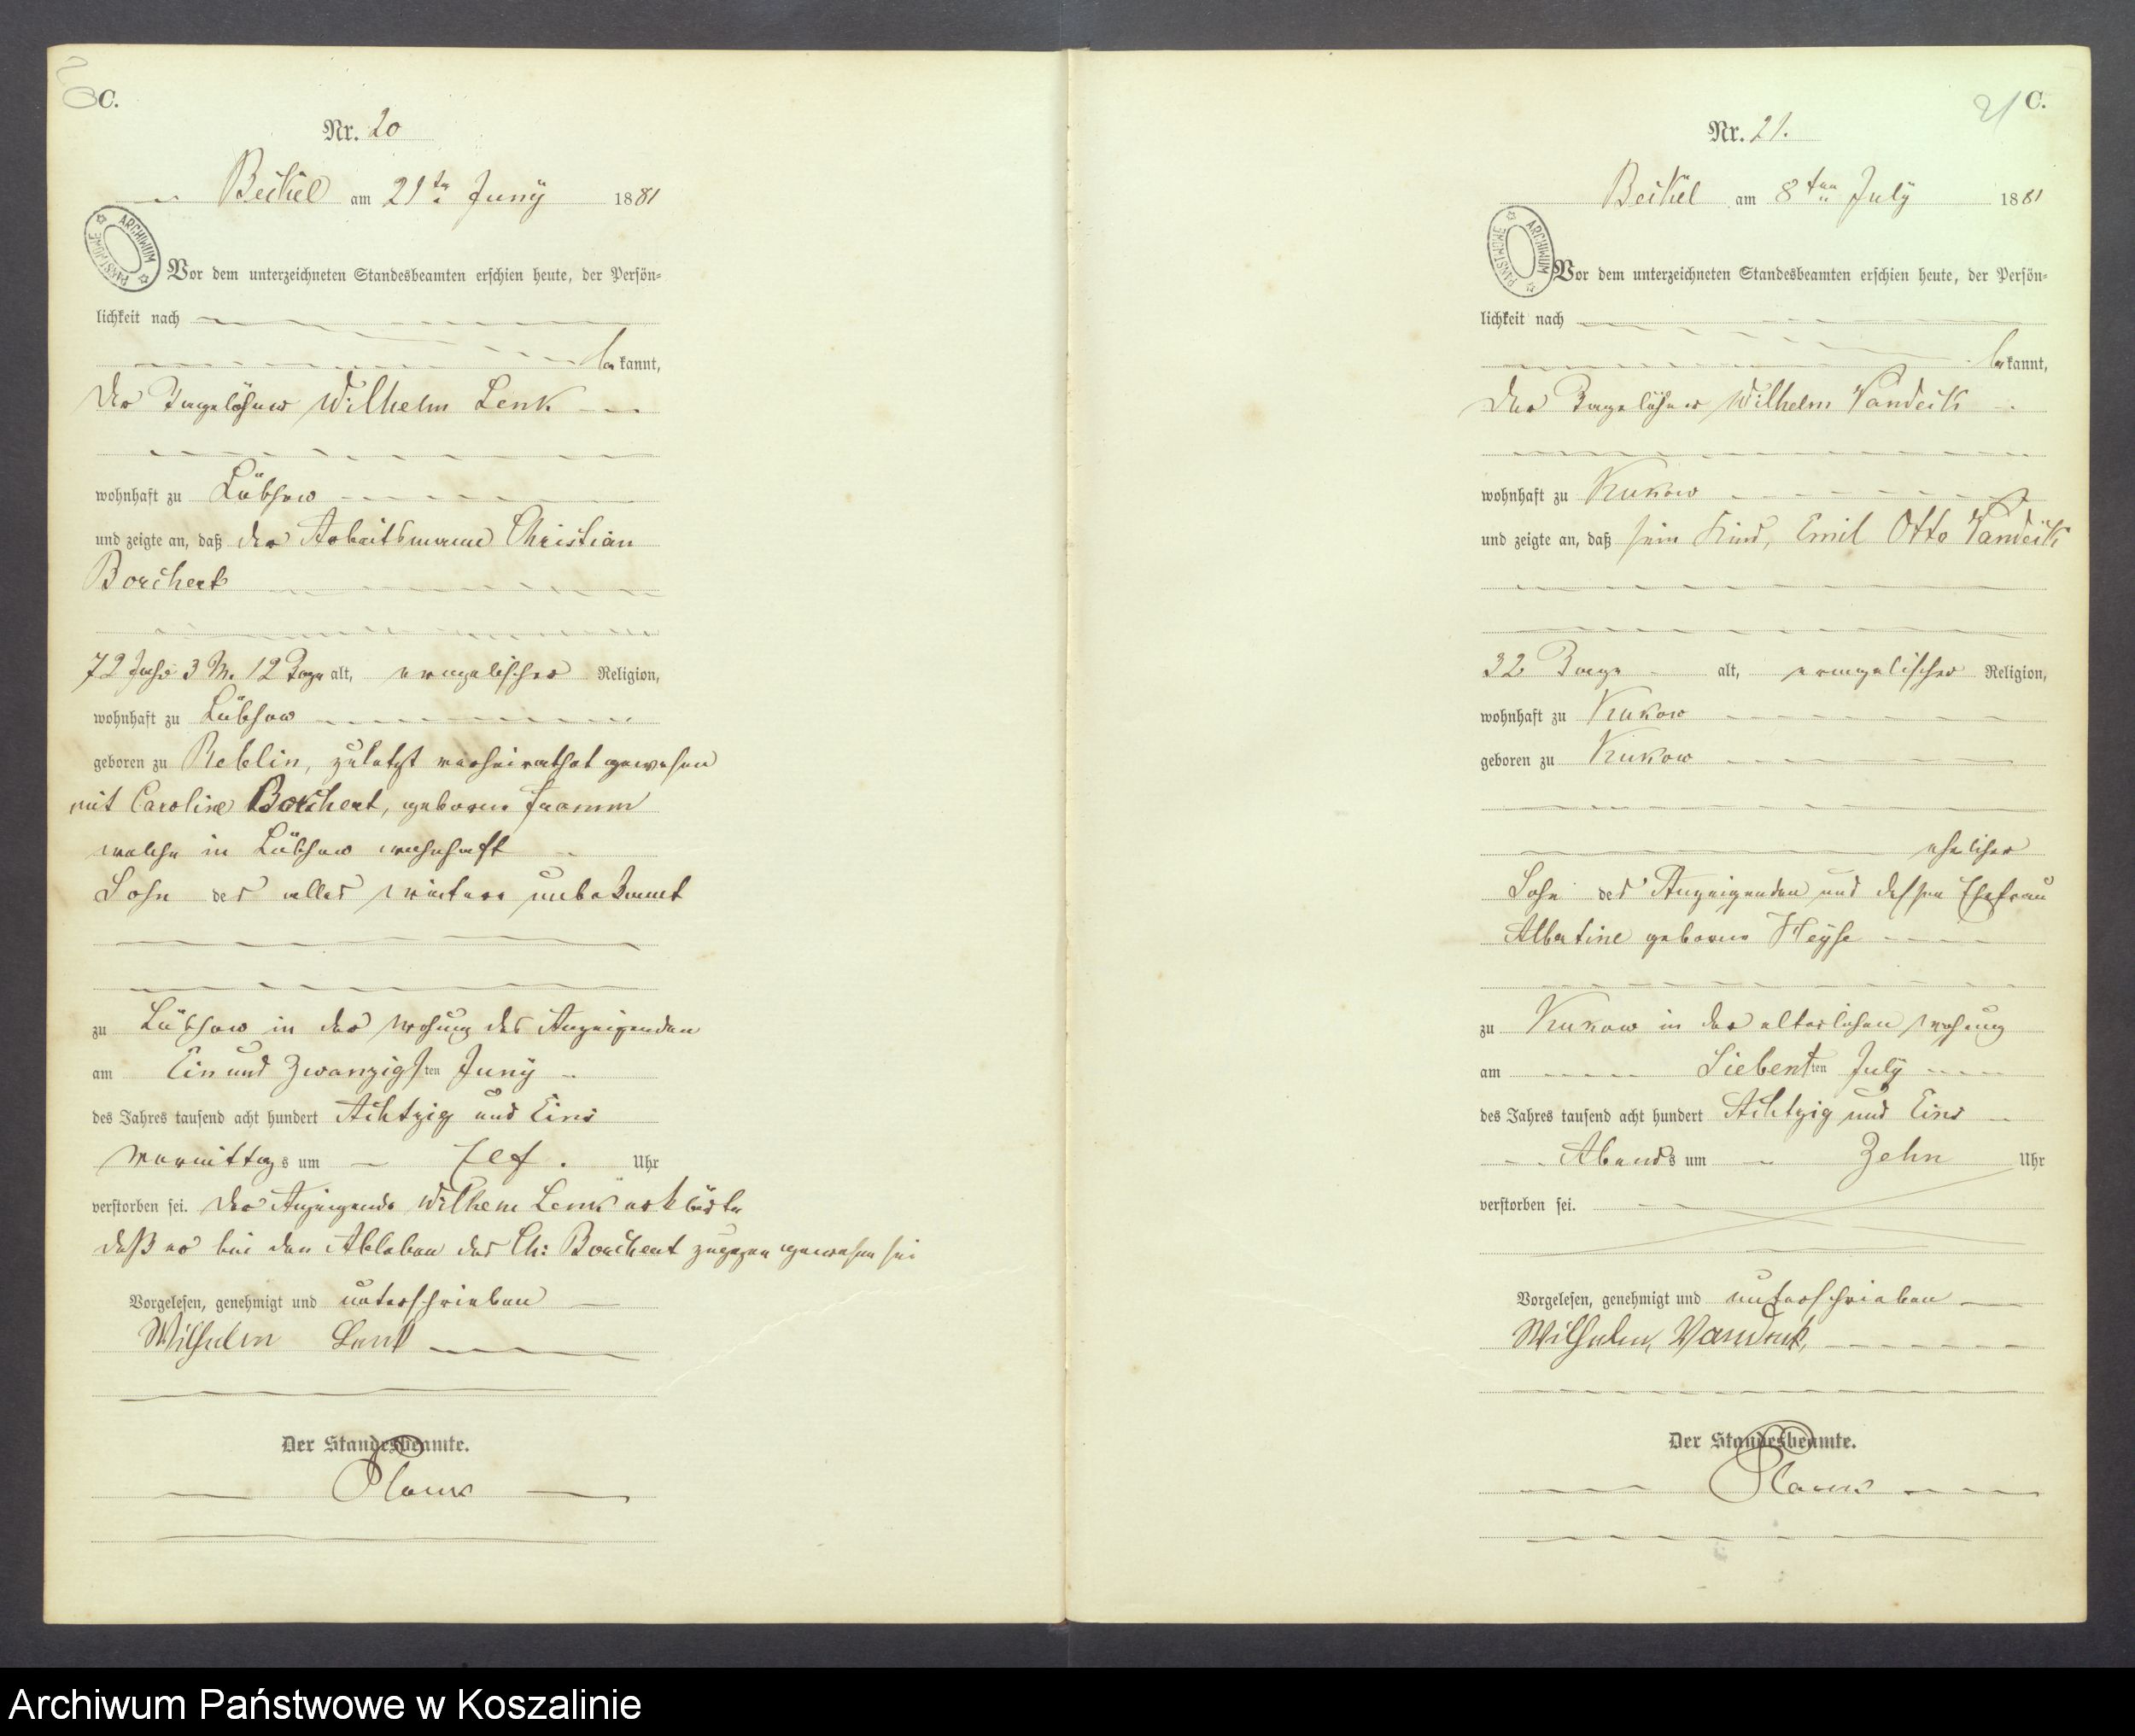 C.
Nr. 20
Beckel am 21ten Juny 1881
ARCHIWUM PAŃSTWOWE
Vor dem unterzeichneten Standesbeamten erschien heute, der Persön-
lichkeit nach
bekannt,
der Tagelöhner Wilhelm Lenk
wohnhaft zu Lübsow
und zeigte an, daß der Arbeitsmann Christian
Borchert
72 Jahr 3 M. 12 Tage alt, evangelischer Religion,
wohnhaft zu Lübsow
geboren zu Reblin, zuletzt verheirathet gewesen
mit Caroline Borchert, geborne Framm
welche in Lübsow wohnhaft
Sohn des alles weitere unbekannt
zu Lübsow in der Wohung des Anzeigenden
am Ein und Zwanzigsten Juny
des Jahres tausend acht hundert Achtzig und Eins
Vormittags um Elf. Uhr
verstorben sei. Der Anzeigende Wilhem Lenk erklärte
daß er bei den Ableben des Ch: Borchert zugegen gewesen sei
Vorgelesen, genehmigt und unterschrieben
Wilhelm Lenk
Der Standesbeamte.
21 C.
Nr. 21.
Beckel am 8ten July 1881
ARCHIWUM PAŃSTWOWE
Vor dem unterzeichneten Standesbeamten erschien heute, der Persön-
lichkeit nach
bekannt,
der Tagelöhner Wilhelm Vandeik
wohnhaft zu Kukow
und zeigte an, daß sein Kind, Emil Otto Vandeik
32 Tage alt, evangelischer Religion,
wohnhaft zu Kukow
geboren zu Kukow
ehelicher
Sohn des Anzeigenden und dessen Ehefrau
Albertine geborne Heyse
zu Kukow in der elterlichen Wohung
am Siebenten July
des Jahres tausend acht hundert Achtzig und Eins
Abends um Zehn Uhr
verstorben sei.
Vorgelesen, genehmigt und unterschrieben
Wilhelm, Vandeik,
Der Standesbeamte.
Archiwum Państwowe w Koszalinie